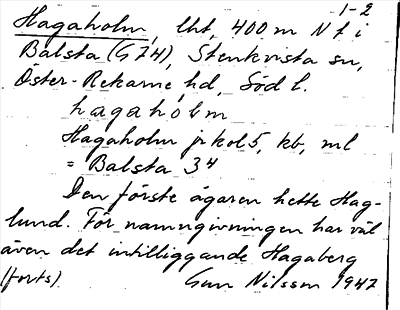 1-2
Hagaholm, lht, 400 m N f i
Balsta (G 74), Stenkvista sn,
Öster-Rekarne hd, Södl.
hagahòlm
Hagaholm jrkol 5, kb, ml
= Balsta 3⁴
Den förste ägaren hette Hag-
lund. För namngivningen har väl
även det intilliggande Hagaberg
(forts). Gun Nilsson 1947